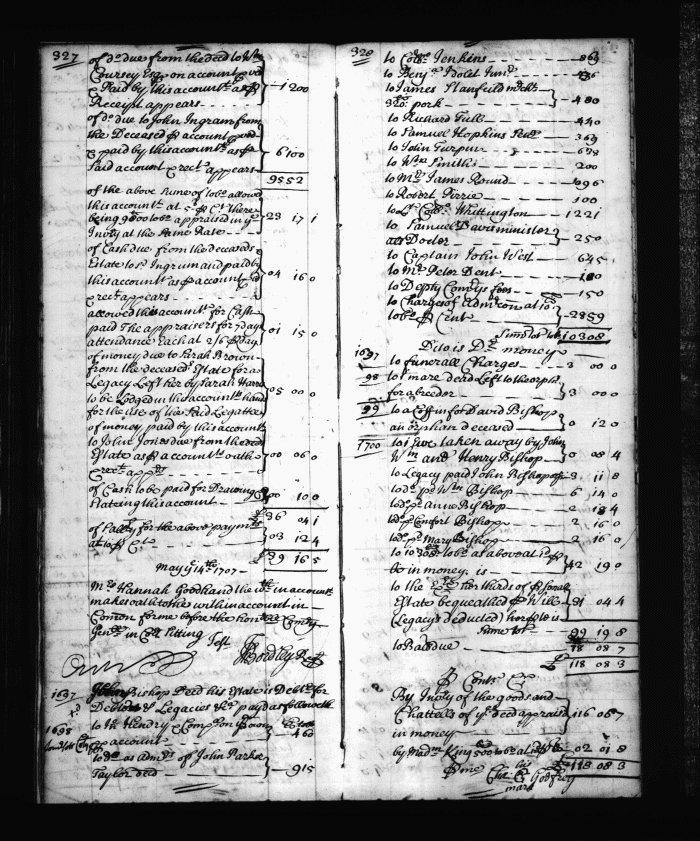 327
of do due from the deced to Wm
Coursey Esqr on account pvd
& Paid by this account as p
Receipt appears - 1200
of do due to John Ingram from
the Deceased p account pvd
& paid by this account as p
said account & rect appears - 6100
9552
of the above sume of tobo allowd
this account at p Ct there
being 9000 tobo appraised in ye
Invty at the same Rate - 23 17 1
of Cash due from the deceaseds
Estate to Ingrum and paid by
this account as p account
& rect appears - 04 16 0
allowed this account for Cash
paid The appraisers for 7 day
attendance Each at 2/6 p day - 01 15 0
of money due to Sarah Brown
from the deceased Estate for a
Legacy Left her by Sarah Hand
to be Lodged in this accounts hand
for the use of the said Legatee - 05 00 0
of money paid by this account
to John Jones due from the deced
Estate as p account & oath &
rect appr - 00 06 0
of Cash to be paid for Drawing &
Stateing this account - 00 10 0
36 04 1
of Sally for the above paymts
at 10 p Ct - 03 12 4
£39 16 5
May ye 14th 1707
Mrs Hannah Goodhand the within account
makes oath to the within account in
Comon forme before the honrble Comry
Genll in Crt Sitting Test
Bordley Regr
1697 John Bishop Deced his Estate is Debtr for
Debts & Legacies &c pd as followeth
1698 to Hendry & Compa on Pown
account - 460
to do as Admr of John Parker
Taylor deced - 915
328
to Collo Jenkins - 869
to Benja Idolet Junr - 436
to James Stanfeild mcht
320 pork - 480
to Richard Tull - 440
to Samuel Hopkins Senr - 369
to John Turpin - 678
to Wm Smith - 200
to Mr James Round - 496
to Robert Pirrie - 100
to Lt Collo Whittington - 1221
to Samuel Davis minister
as Doctor - 250
to Captain John West - 645
to Mr Peter Dent - 100
to Depty Comrys fees - 150
to Charges of Admcon at 10
tobo p Cent - 2859
Sume tot tob 10308
Dito is Dr money
1697 to funerall Charges - 3 00 0
98 to 1 mare dead Left to the orph
for a breeder - 3 00 0
99 to a Coffin for David Bishop
an orphan deceased - 0 12 0
1700 to 1 Ewe taken away by John
Wm and Henry Bishop - 0 08 4
to Legacy paid John Bishop - 3 11 8
to do pd Wm Bishop - 6 14 0
to do pd Anne Bishop - 2 4
to do pd Comfort Bishop - 2 16 0
to do pd Mary Bishop - 2 16 0
to 10308 tobo as above at 1d p
be in money is - 42 19 0
to the Exrs her thirds of p sonall
Estate bequeathed p Will
(Legacys deducted) - 31 04 4
Sume tot 99 19 8
to Ball due 18 08 7
£118 08 3
p Contr Cr
By Invty of the goods and
Chattells of ye deced appraisd
in money - 116 06 7
by Madm King 500 tobo at - 02 01 8
£118 08 3
p me his
Godfrey
mark